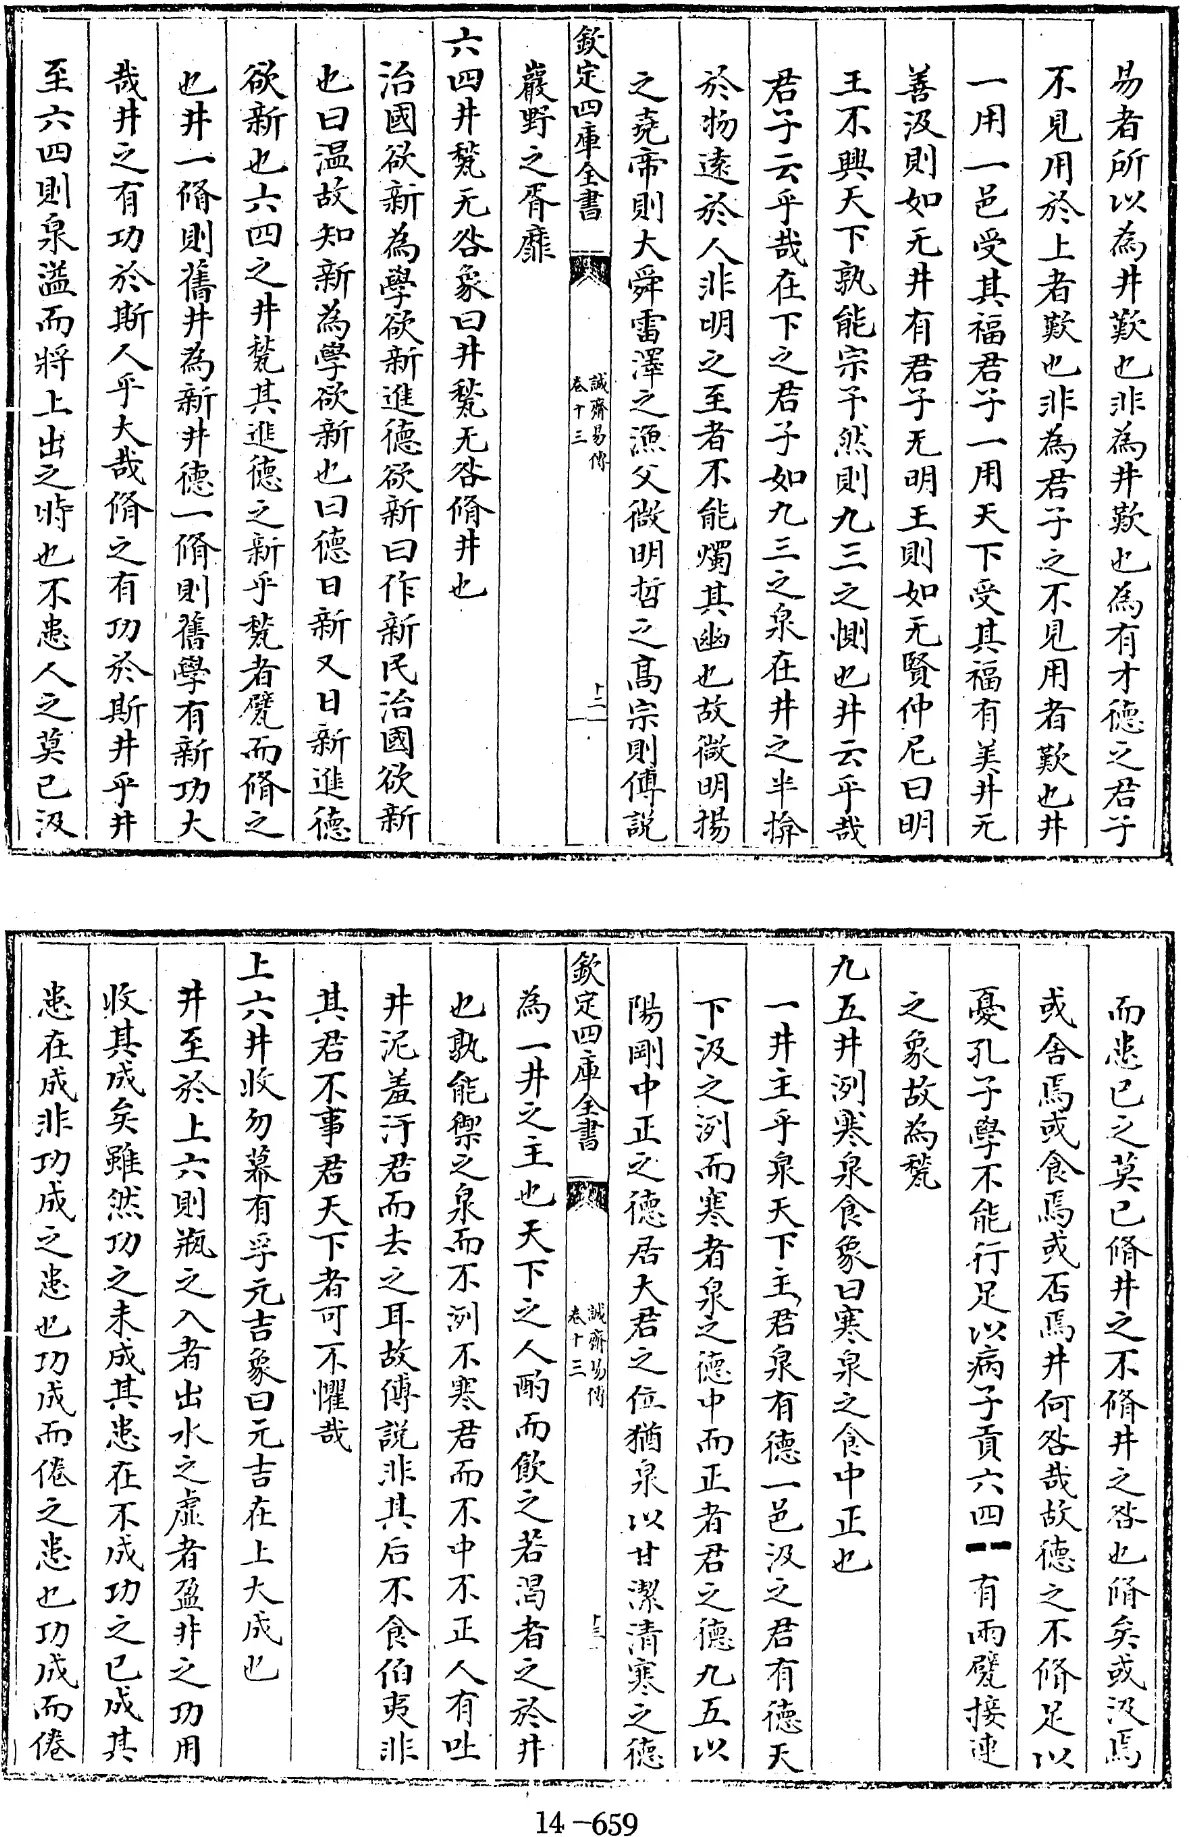 易者所以為井歎也非為井歎也為有才德之君子
不見用於上者歎也非為君子之不見用者歎也井
一用一邑受其福君子一用天下受其福有美井无
善汲則如无井有君子无明王則如无賢仲尼曰明
王不興天下孰能宗予然則九三之惻也井云乎哉
君子云乎哉在下之君子如九三之泉在井之半揜
於物遠於人非明之至者不能燭其幽也故微明揚
之堯帝則大舜雷澤之漁父微明哲之髙宗則傅説
欽定四庫全書
誠齋易傳
卷十三
十二
巖野之胥靡
六四井甃无咎象曰井甃无咎脩井也
治國欲新為學欲新進德欲新曰作新民治國欲新
也曰温故知新為學欲新也曰德日新又日新進德
欲新也六四之井甃其進德之新乎甃者甓而脩之
也井一脩則舊井為新井德一脩則舊學有新功大
哉井之有功於斯人乎大哉脩之有功於斯井乎井
至六四則泉溢而將上出之時也不患人之莫已汲
而患已之莫已脩井之不脩井之咎也脩矣或汲焉
或舍焉或食焉或否焉井何咎哉故德之不脩足以
憂孔子學不能行足以病子貢六四⚋有雨甓接連
之象故為甃
九五井冽寒泉食象曰寒泉之食中正也
一井主乎泉天下主君泉有德一邑汲之君有德天
下汲之冽而寒者泉之德中而正者君之德九五以
陽剛中正之德居大君之位猶泉以甘潔清寒之德
欽定四庫全書
誠齋易傳
卷十三
十三
為一井之主也天下之人酌而飲之若渴者之於井
也孰能禦之泉而不冽不寒君而不中不正人有吐
井泥羞汙君而去之耳故傅説非其后不食伯夷非
其君不事君天下者可不懼哉
上六井收勿幕有孚元吉象曰元吉在上大成也
井至於上六則瓶之入者出水之虛者盈井之功用
收其成矣雖然功之未成其患在不成功之已成其
患在成非功成之患也功成而倦之患也功成而倦
14-659